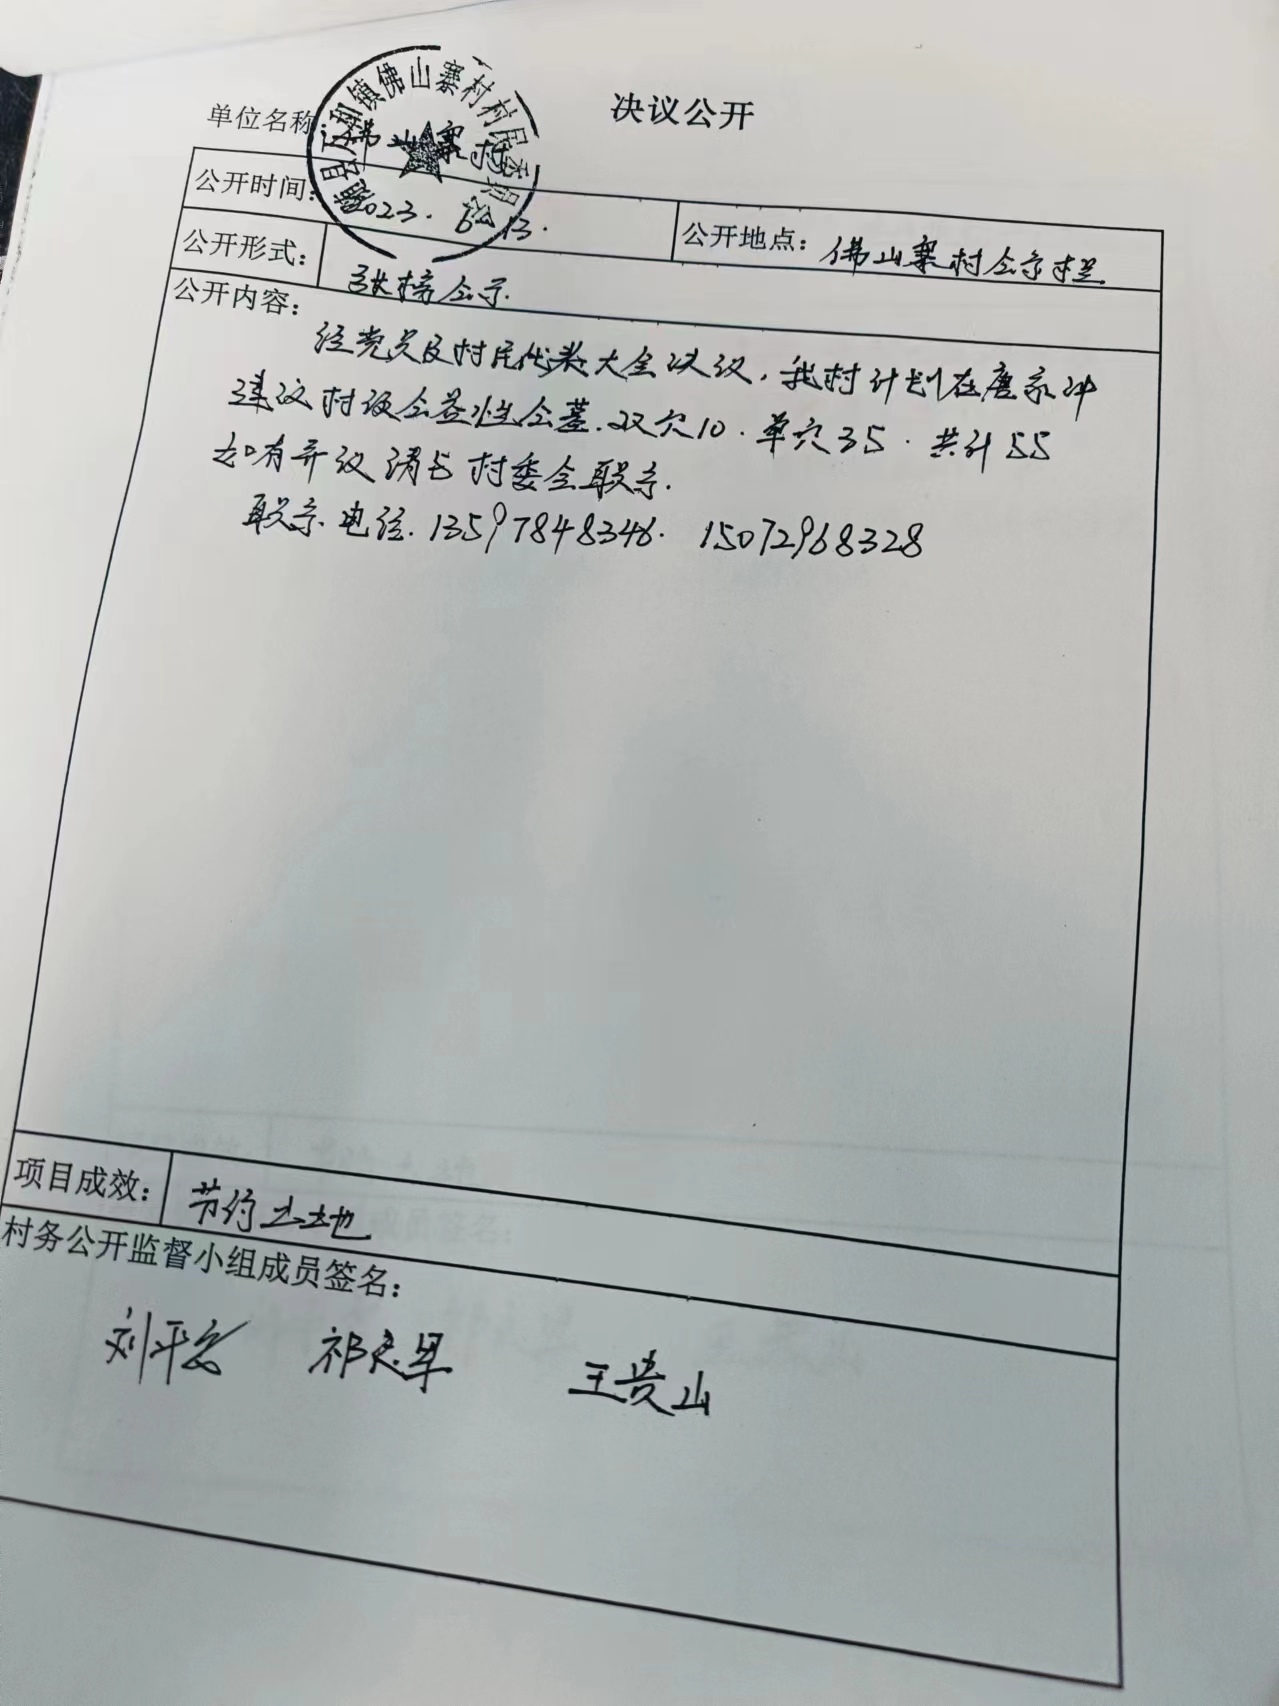 决议公开
单位名称：佛山寨村
随县万和镇佛山寨村村民委员会
公开时间：2023.6.13.
公开地点：佛山寨村公示栏
公开形式：张榜公示.
公开内容：
经党员及村民代表大会决议，我村计划在唐家冲
建设村级公益性公墓.双穴10.单穴35.共计55
如有异议请与村委会联系.
联系电话.13597848346. 15072968328
项目成效：节约土地
村务公开监督小组成员签名：
刘平 祁 王贵山